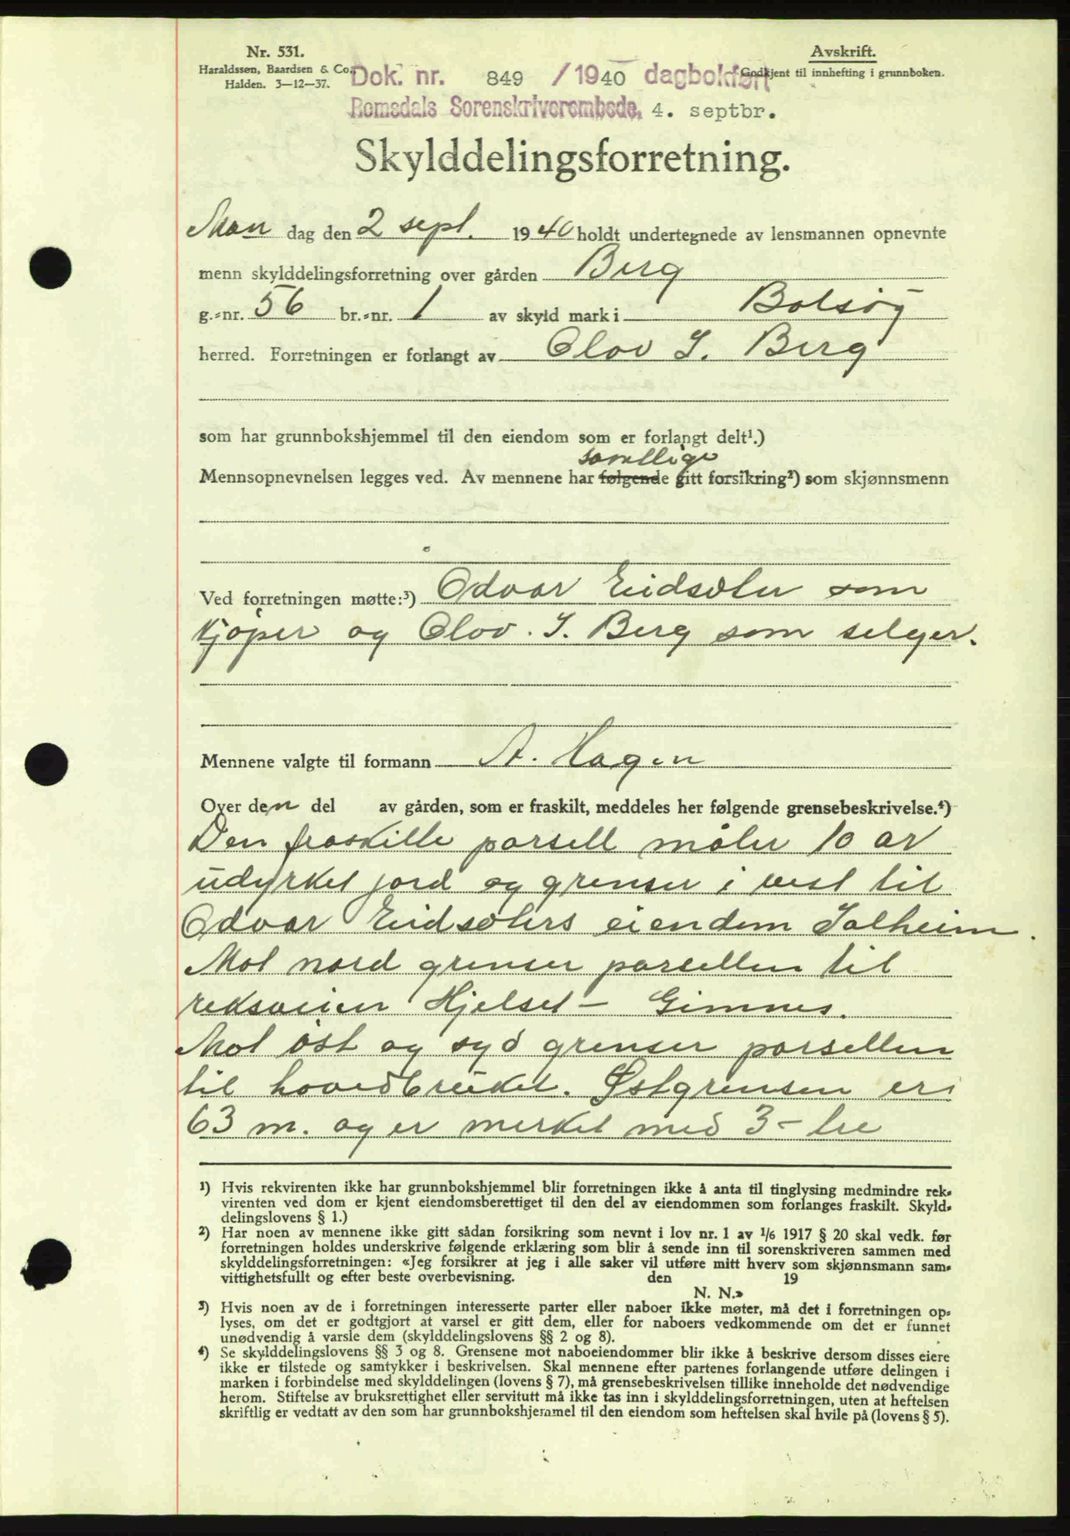 Nr. 531.
Haraldssen, Baardsen & Co.,
Halden. 3—12—37.
Avskrift.
Godkjent til innhefting i grunnboken.
Dok. nr. 849 /1940 dagbokført
Romsdals Sorenskriverembede, 4. septbr.
Skylddelingsforretning.
Man dag den 2 sept. 1940 holdt undertegnede av lensmannen opnevnte
menn skylddelingsforretning over gården Berg
g.-nr. 56 br.-nr. 1 av skyld mark i Bolsøy
herred. Forretningen er forlangt av Olov I. Berg
som har grunnbokshjemmel til den eiendom som er forlangt delt¹.)
samtlige
Mennsopnevnelsen legges ved. Av mennene har følgende gitt forsikring²) som skjønnsmenn
Ved forretningen møtte:³) Odvar Eidsæter som
kjøper og Olov. I. Berg som selger.
Mennene valgte til formann A. Hagen
Over den del av gården, som er fraskilt, meddeles her følgende grensebeskrivelse.⁴)
Den fraskilte parsell måler 10 ar
udyrket jord og grenser i vest til
Odvar Eidsæters eiendom Solheim.
Mot nord grenser parsellen til
reksveien Hjelset – Gimnes.
Mot øst og syd grenser parsellen
til hovedbruket. Østgrensen er
63 m. og er merket med 3– tre
¹) Hvis rekvirenten ikke har grunnbokshjemmel blir forretningen ikke å anta til tinglysing medmindre rek-
virenten ved dom er kjent eiendomsberettiget til den del av eiendommen som forlanges fraskilt. Skyld-
delingslovens § 1.)
²) Har noen av mennene ikke gitt sådan forsikring som nevnt i lov nr. 1 av 1/6 1917 § 20 skal vedk. før
forretningen holdes underskrive følgende erklæring som blir å sende inn til sorenskriveren sammen med
skylddelingsforretningen: «Jeg forsikrer at jeg i alle saker vil utføre mitt hverv som skjønnsmann sam-
vittighetsfullt og efter beste overbevisning. den 19
N. N.»
³) Hvis noen av de i forretningen interesserte parter eller naboer ikke møter, må det i forretningen op-
lyses, om det er godtgjort at varsel er gitt dem, eller for naboers vedkommende om det er funnet
unødvendig å varsle dem (skylddelingslovens §§ 2 og 8).
⁴) Se skylddelingslovens §§ 3 og 8. Grensene mot naboeiendommer blir ikke å beskrive dersom disses eiere
ikke er tilstede og samtykker i beskrivelsen. Skal mennene efter partenes forlangende utføre delingen i
marken i forbindelse med skylddelingen (lovens § 7), må grensebeskrivelsen tillike inneholde det nødvendige
herom. Stiftelse av bruksrettighet eller servitutt må ikke tas inn i skylddelingsforretningen, uten at heftelsen
skriftlig er vedtatt av den som har grunnbokshjemmel til den eiendom som heftelsen skal hvile på (lovens § 5).